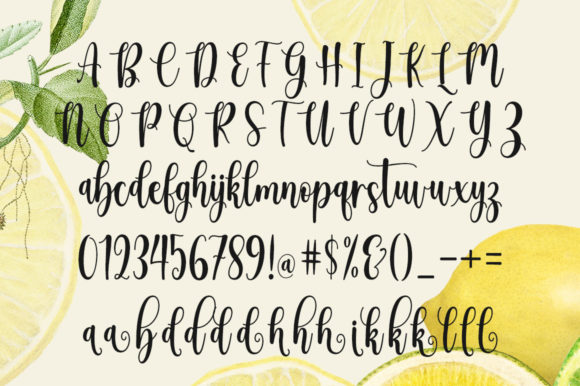 A B C D E F G H I J K L M
N O P Q R S T U V W X Y Z
abcdefghijklmnopqrstuvwxyz
0123456789!@#$%&()_-+=
aabddddhhhikkklll